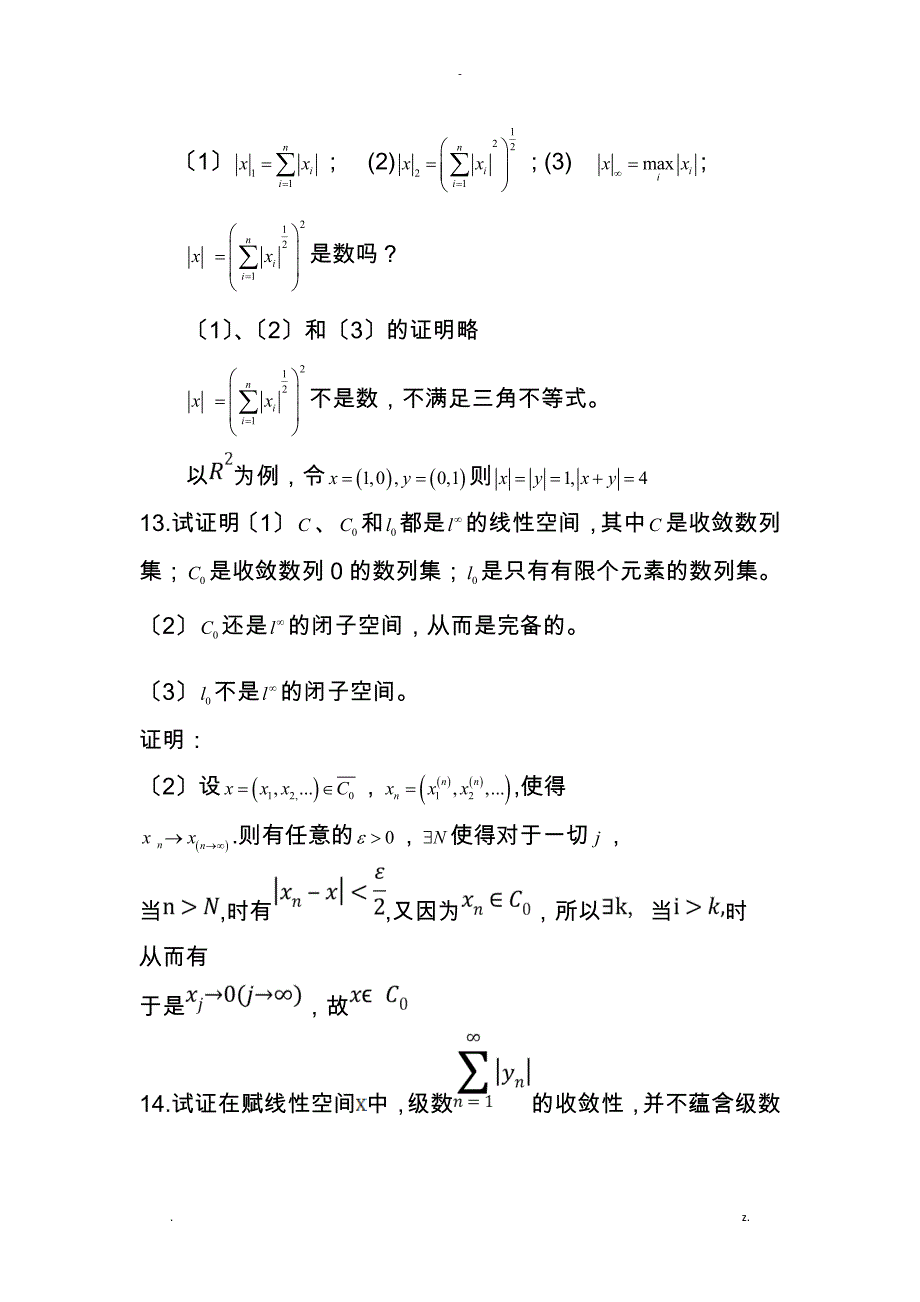 -
〔1〕|x|₁ = ∑_{i=1}^{n} |x_i| ； (2) |x|₂ = (∑_{i=1}^{n} |x_i|²)^{1/2} ；(3) |x|_∞ = max_i |x_i|；
|x| = (∑_{i=1}^{n} |x_i|^{1/2})² 是数吗？
〔1〕、〔2〕和〔3〕的证明略
|x| = (∑_{i=1}^{n} |x_i|^{1/2})² 不是数，不满足三角不等式。
以R²为例，令 x = (1,0), y = (0,1) 则 |x| = |y| = 1, |x + y| = 4
13.试证明〔1〕C 、C₀和l₀都是l^∞的线性空间，其中C是收敛数列
集；C₀是收敛数列０的数列集；l₀是只有有限个元素的数列集。
〔2〕C₀还是l^∞的闭子空间，从而是完备的。
〔3〕l₀不是l^∞的闭子空间。
证明：
〔2〕设 x = (x₁, x₂,...) ∈ \overline{C₀} ，x_n = (x₁^{(n)}, x₂^{(n)},...),使得
x_n → x_{(n→∞)}.则有任意的 ε > 0 ，∃N 使得对于一切 j ，
当n > N,时有|x_n − x| < ε/2,又因为x_n ∈ C₀，所以∃k, 当i > k,时
从而有
于是x_j→0(j→∞)，故xϵ C₀
14.试证在赋线性空间x中，级数∑_{n = 1}^{∞} |y_n| 的收敛性，并不蕴含级数
. z.